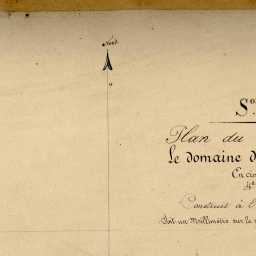 Nord
S
Plan du
Le domaine d
En ci
4e
Construit à l
Soit un Millimètre sur le